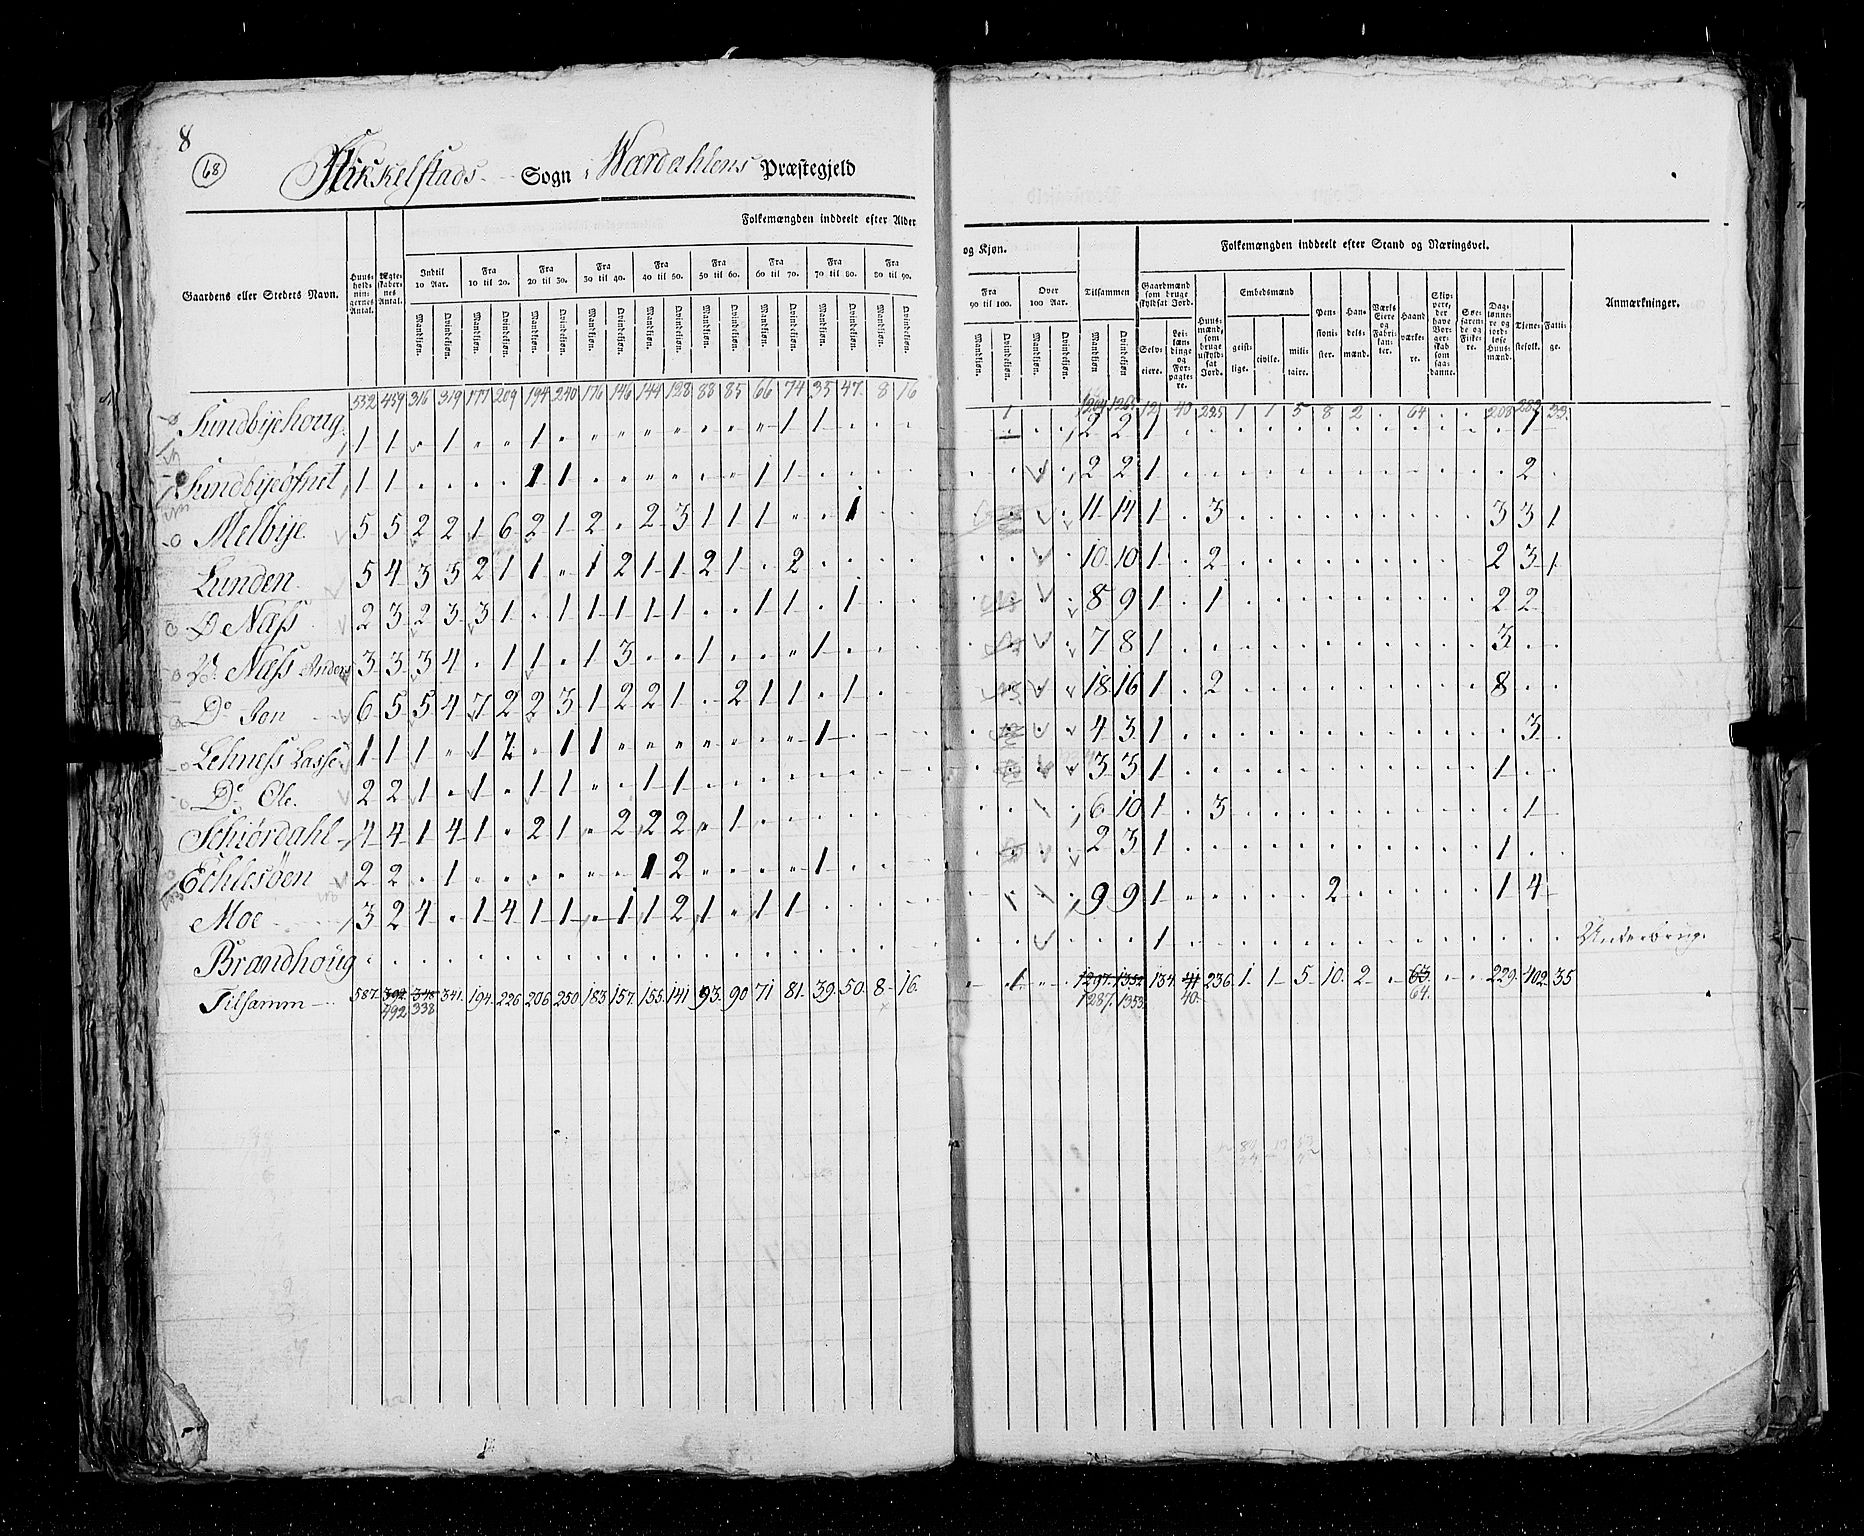 8
68
Stikkelstads Sogn i Wærdahlens Præstegjeld
Gaardens eller Stedets Navn. Huusholdningernes Antal. Ægteskabernes Antal. Folkemængden inddeelt efter Alder og Kjøn. Folkemængden inddeelt efter Stand og Næringsvei. Anmærkninger.
Indtil 10 Aar. Fra 10 til 20. Fra 20 til 30. Fra 30 til 40. Fra 40 til 50. Fra 50 til 60. Fra 60 til 70. Fra 70 til 80. Fra 80 til 90. Fra 90 til 100. Over 100 Aar. Tilsammen Gaardmænd som bruge skyldsat Jord. Huusmænd, som bruge uskyldsat Jord. Embedsmænd Pensionister. Handelsmænd. Værks Eiere og Fabrikanter. Haandværkere. Skippere, der have Borgerskab som saadanne. Søefarende og Fiskere. Daglønnere og jordløse Huusmænd. Tjenestefolk. Fattige.
Mandkjøn. Qvindekjøn. Mandkjøn. Qvindekjøn. Mandkjøn. Qvindekjøn. Mandkjøn. Qvindekjøn. Mandkjøn. Qvindekjøn. Mandkjøn. Qvindekjøn. Mandkjøn. Qvindekjøn. Mandkjøn. Qvindekjøn. Mandkjøn. Qvindekjøn. Mandkjøn. Qvindekjøn. Mandkjøn. Qvindekjøn. Mandkjøn Qvindekjøn Selveiere. Leilændinge og Forpagtere. geistlige. civile. militaire.
532 459 316 319 177 209 194 240 176 146 144 128 88 85 66 74 35 47 8 16 1 1204 1265 121 40 225 1 1 5 8 2 . 64 . . 208 282 33
Sundbyehoug 1 1 . 1 . . 1 . . . . . . . . 1 1 . . . . . . . 2 2 1 . . . . . . . . . . . . 1
Sundbyeøfnet 1 1 . . . . 1 1 . . . . . . 1 1 . . . . . . 2 2 1 . . . . . . . . . . . . 2 .
Melbye 5 5 2 2 1 6 2 1 2 . 2 3 1 1 1 . . 1 . . . . 11 14 1 . 3 . . . . . . . . . 3 3 1
Lunden 5 4 3 3 2 1 1 . 1 2 1 1 2 1 . 2 . . . . . . . 10 10 1 . 2 . . . . . . . . . 2 3 1
Ø Næss 2 3 2 3 3 1 . 1 1 1 1 1 . . 1 1 . 1 . . . 8 9 1 . 1 . . . . . . . . . 2 2
V. Næss Anders 3 3 3 4 . 1 1 . 1 3 . . 1 . . . 1 . . . . 7 8 1 . . . . . . . . . . . 3 . .
Do Jon 6 5 5 4 7 2 2 3 1 2 2 1 . 2 1 1 . 1 . . . 18 16 1 . 2 . . . . . . . . . 8 . .
Lehness Lasse 1 1 1 . 1 2 . 1 1 . . . . . . . 1 . . . . 4 3 1 . . . . . . . . . . . . 3 .
Do Ole. 2 2 1 . 1 . 1 1 . . 1 1 . . . . . . . . . 3 3 1 . . . . . . . . . . . 1 . .
Schiørdahl 4 4 1 4 1 . 2 1 . 2 2 2 . 1 . . . . . . . 6 10 1 . 3 . . . . . . . . . . 1 .
Echlesøen 2 2 . 1 . . . . . . 1 2 . . . . 1 . . . . 2 3 1 . . . . . . . . . . . 1 . .
Moe 3 2 4 . 1 4 1 1 . 1 1 2 1 . 1 1 . . . . . 9 9 1 . . . . . 2 . . . . . 1 4
Brandhoug . . . . . . . . . . . . . . . . . . . . . . . 1 . . . . . . . . . . . . . . Underbrug.
Tilsamm 587. 392 348 341. 194. 226 206 250 183 157. 155. 141 93. 90 71 81. 39. 50. 8 16. . 1 . . 1297. 1352 134. 41 236. 1 1 5. 10. 2 . 63. . . 229. 402. 35
492. 338 1287. 1353. 40. 64.